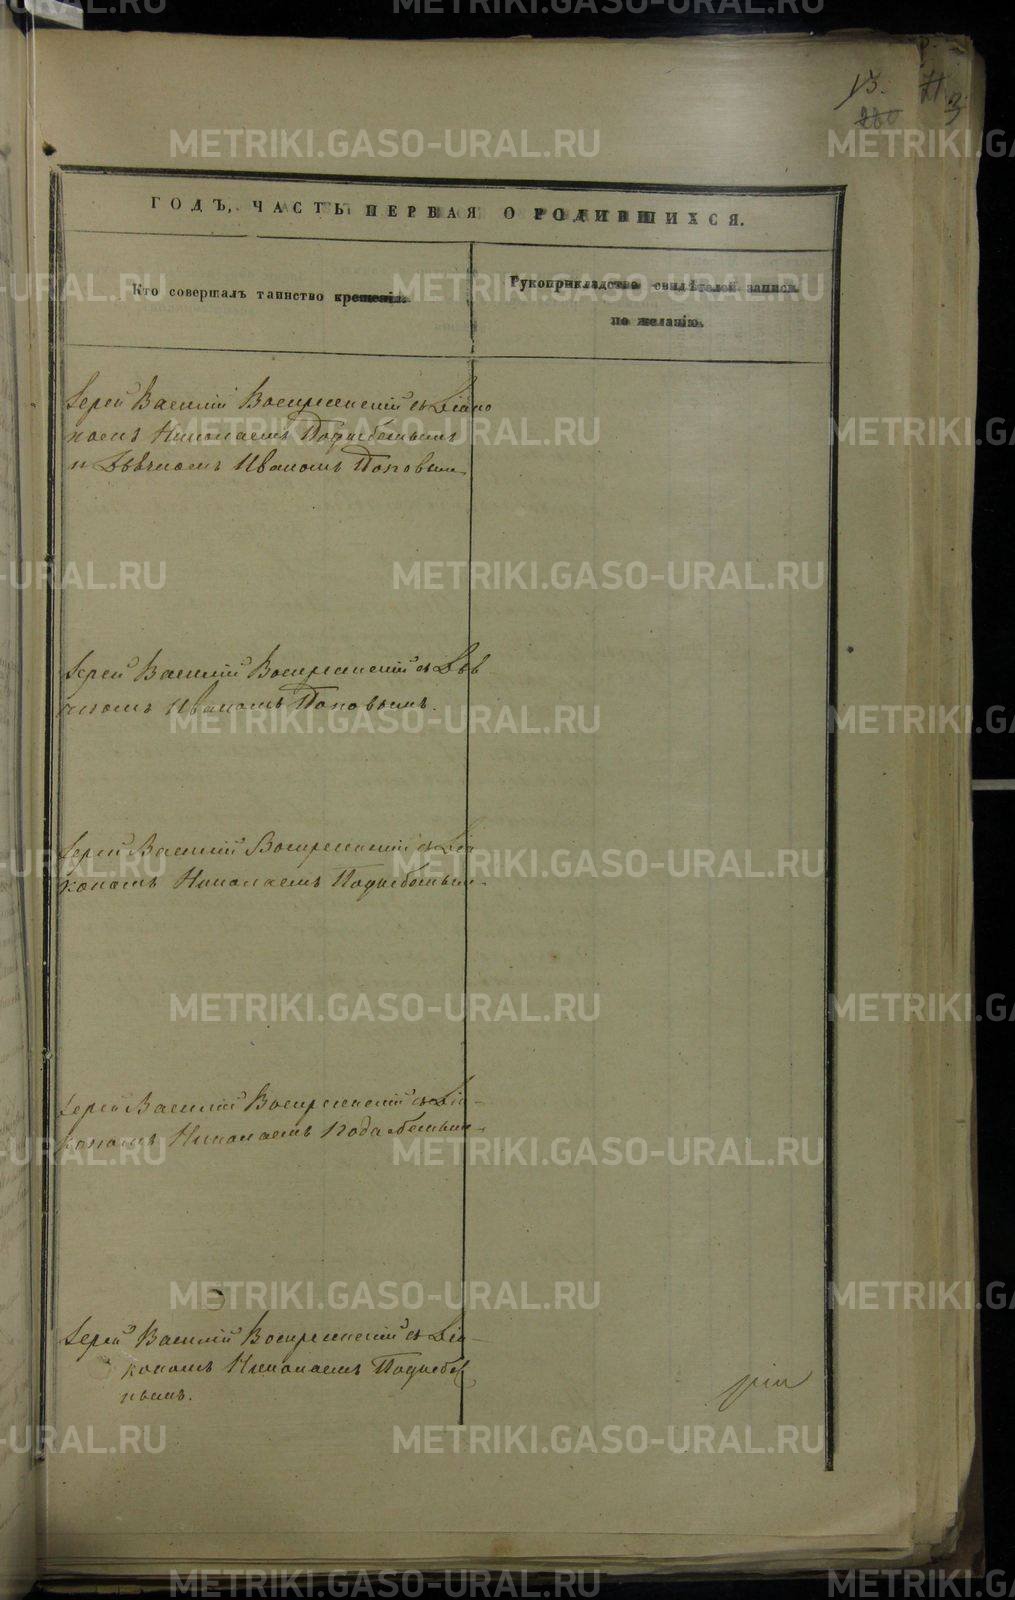 13.
ГОДЪ, ЧАСТЬ ПЕРВАЯ О РОДИВШИХСЯ.
Кто совершалъ таинство крещенія.
Рукоприкладство свидѣтелей записи
по желанію.
Іерей Василій Воскресенскій съ Діако
номъ Николаемъ Поднебеснымъ
и Дьячкомъ Иваномъ Поповым
Іерей Василій Воскресенскій съ Дья
чкомъ Иваномъ Поповымъ.
Іерей Василій Воскресенскій съ Діа
кономъ Николаемъ
Іерей Василій Воскресенскій съ Діа-
кономъ Николаемъ
Іерей Василій Воскресенскій съ Діа-
кономъ Николаемъ Поднебес
нымъ.
METRIKI.GASO-URAL.RU